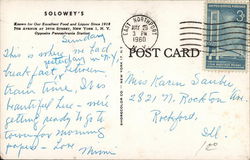 SOLOWEY'S
Known for Our Excellent Food and Liquor Since 1918
7TH AVENUE AT 34TH STREET, NEW YORK 1, N. Y.
Opposite Pennsylvania Station
Sunday
This is where we had
yesterday in N.Y.
breakfast between
train time. It is
beautiful here - we're
getting ready to go to
tomorrow morning
- Love
Mimi
EAST NORTHPORT
3 PM
1960
POST CARD
Miss Karen
2821 N. Rockton Ave
Rockford,
Ill.